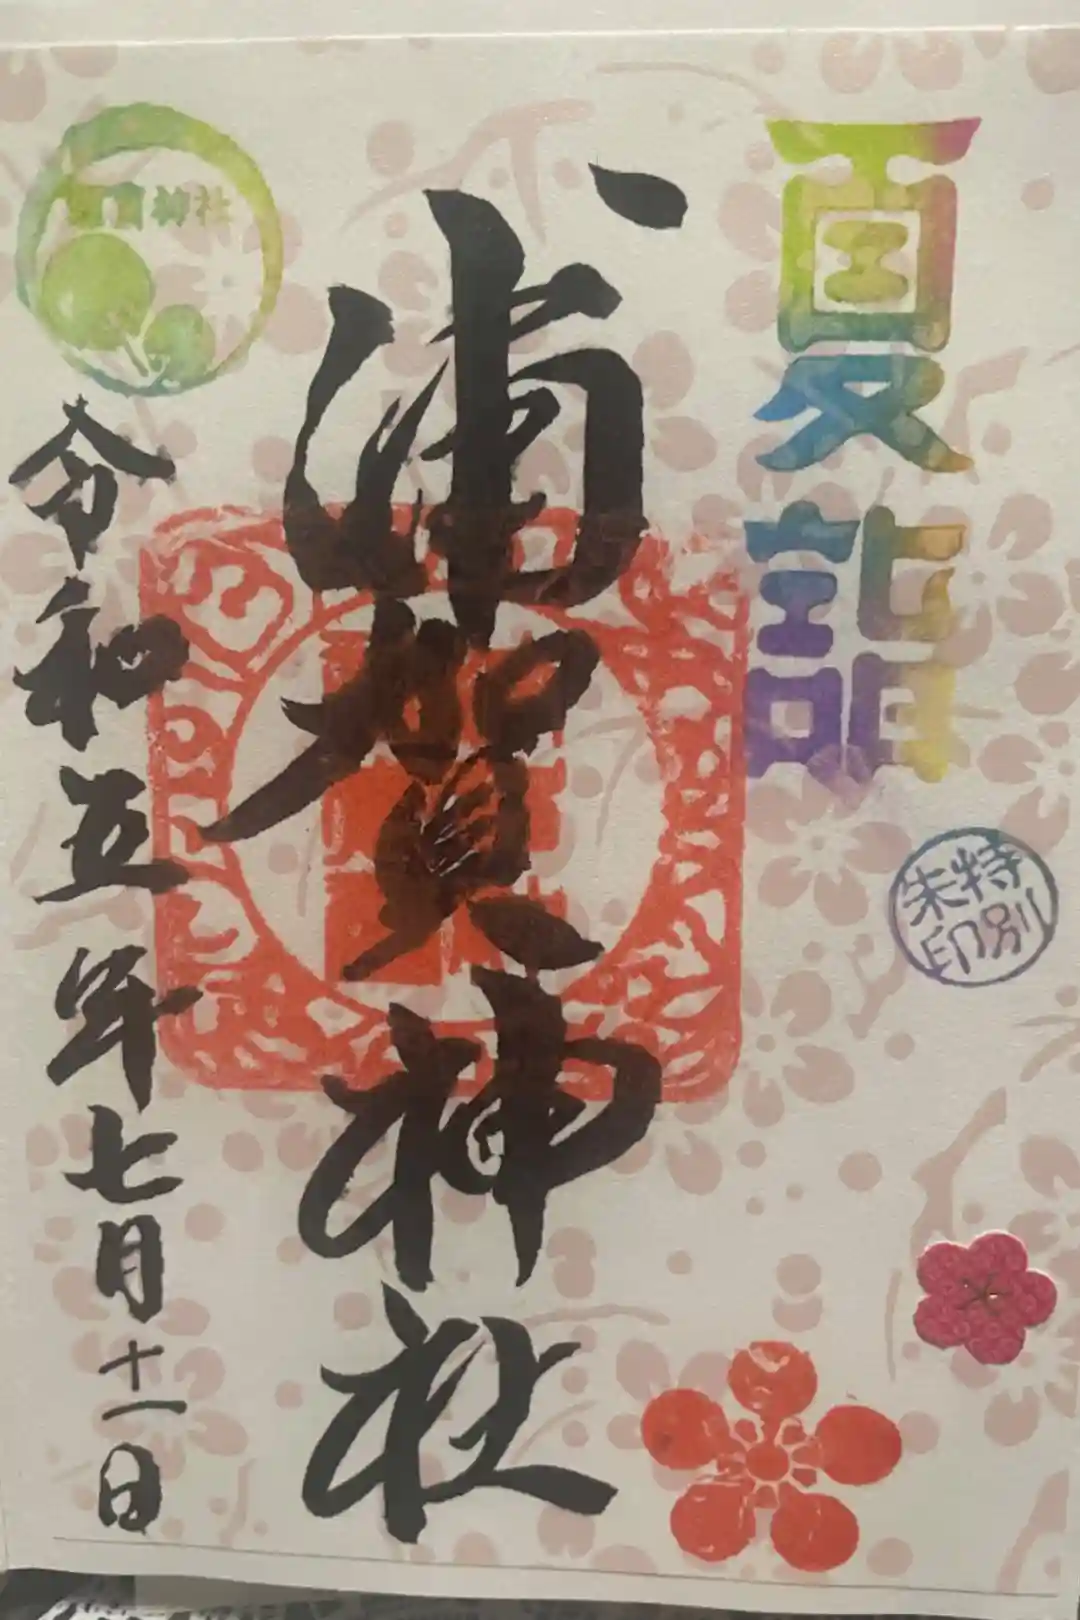 夏詣
特別
朱印
浦賀神社
令和五年七月十一日
神社